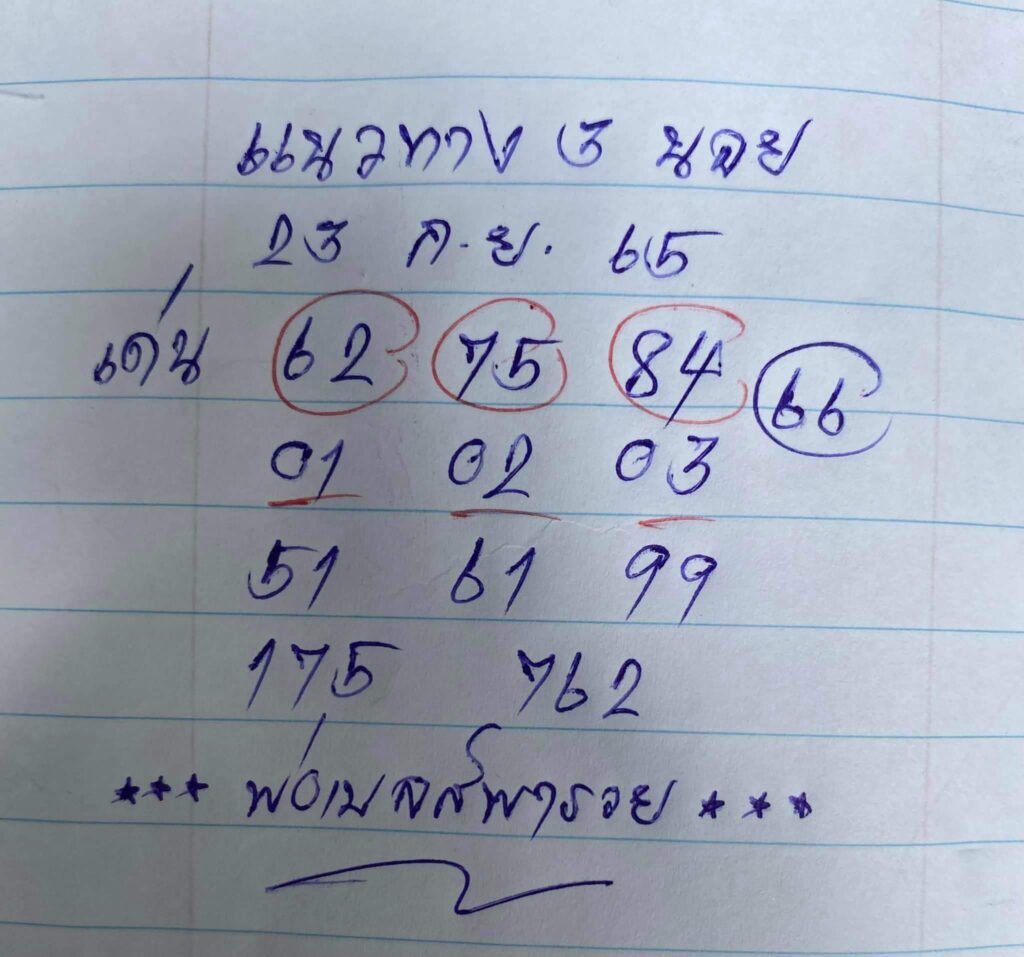 แนวทาง 3 นอย
23 ก.ย. 65
เด่น 62 75 84 66
01 02 03
51 61 99
175 762
*** พ่อเบสพารวย ***